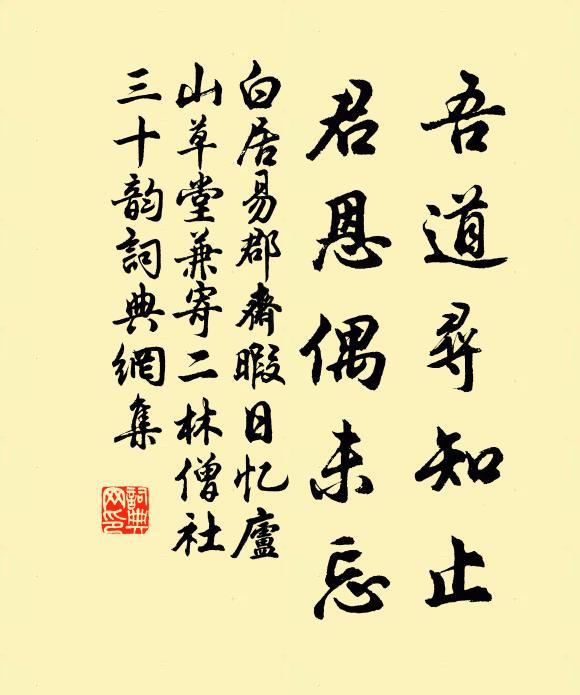 吾道尋知止
君恩偶未忘
白居易郡齋暇日忆廬
山草堂兼寄二林僧社
三十韵詞典網集
詞典网印